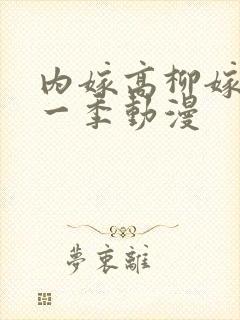 内嫁高柳嫁
一季動漫
夢衷離